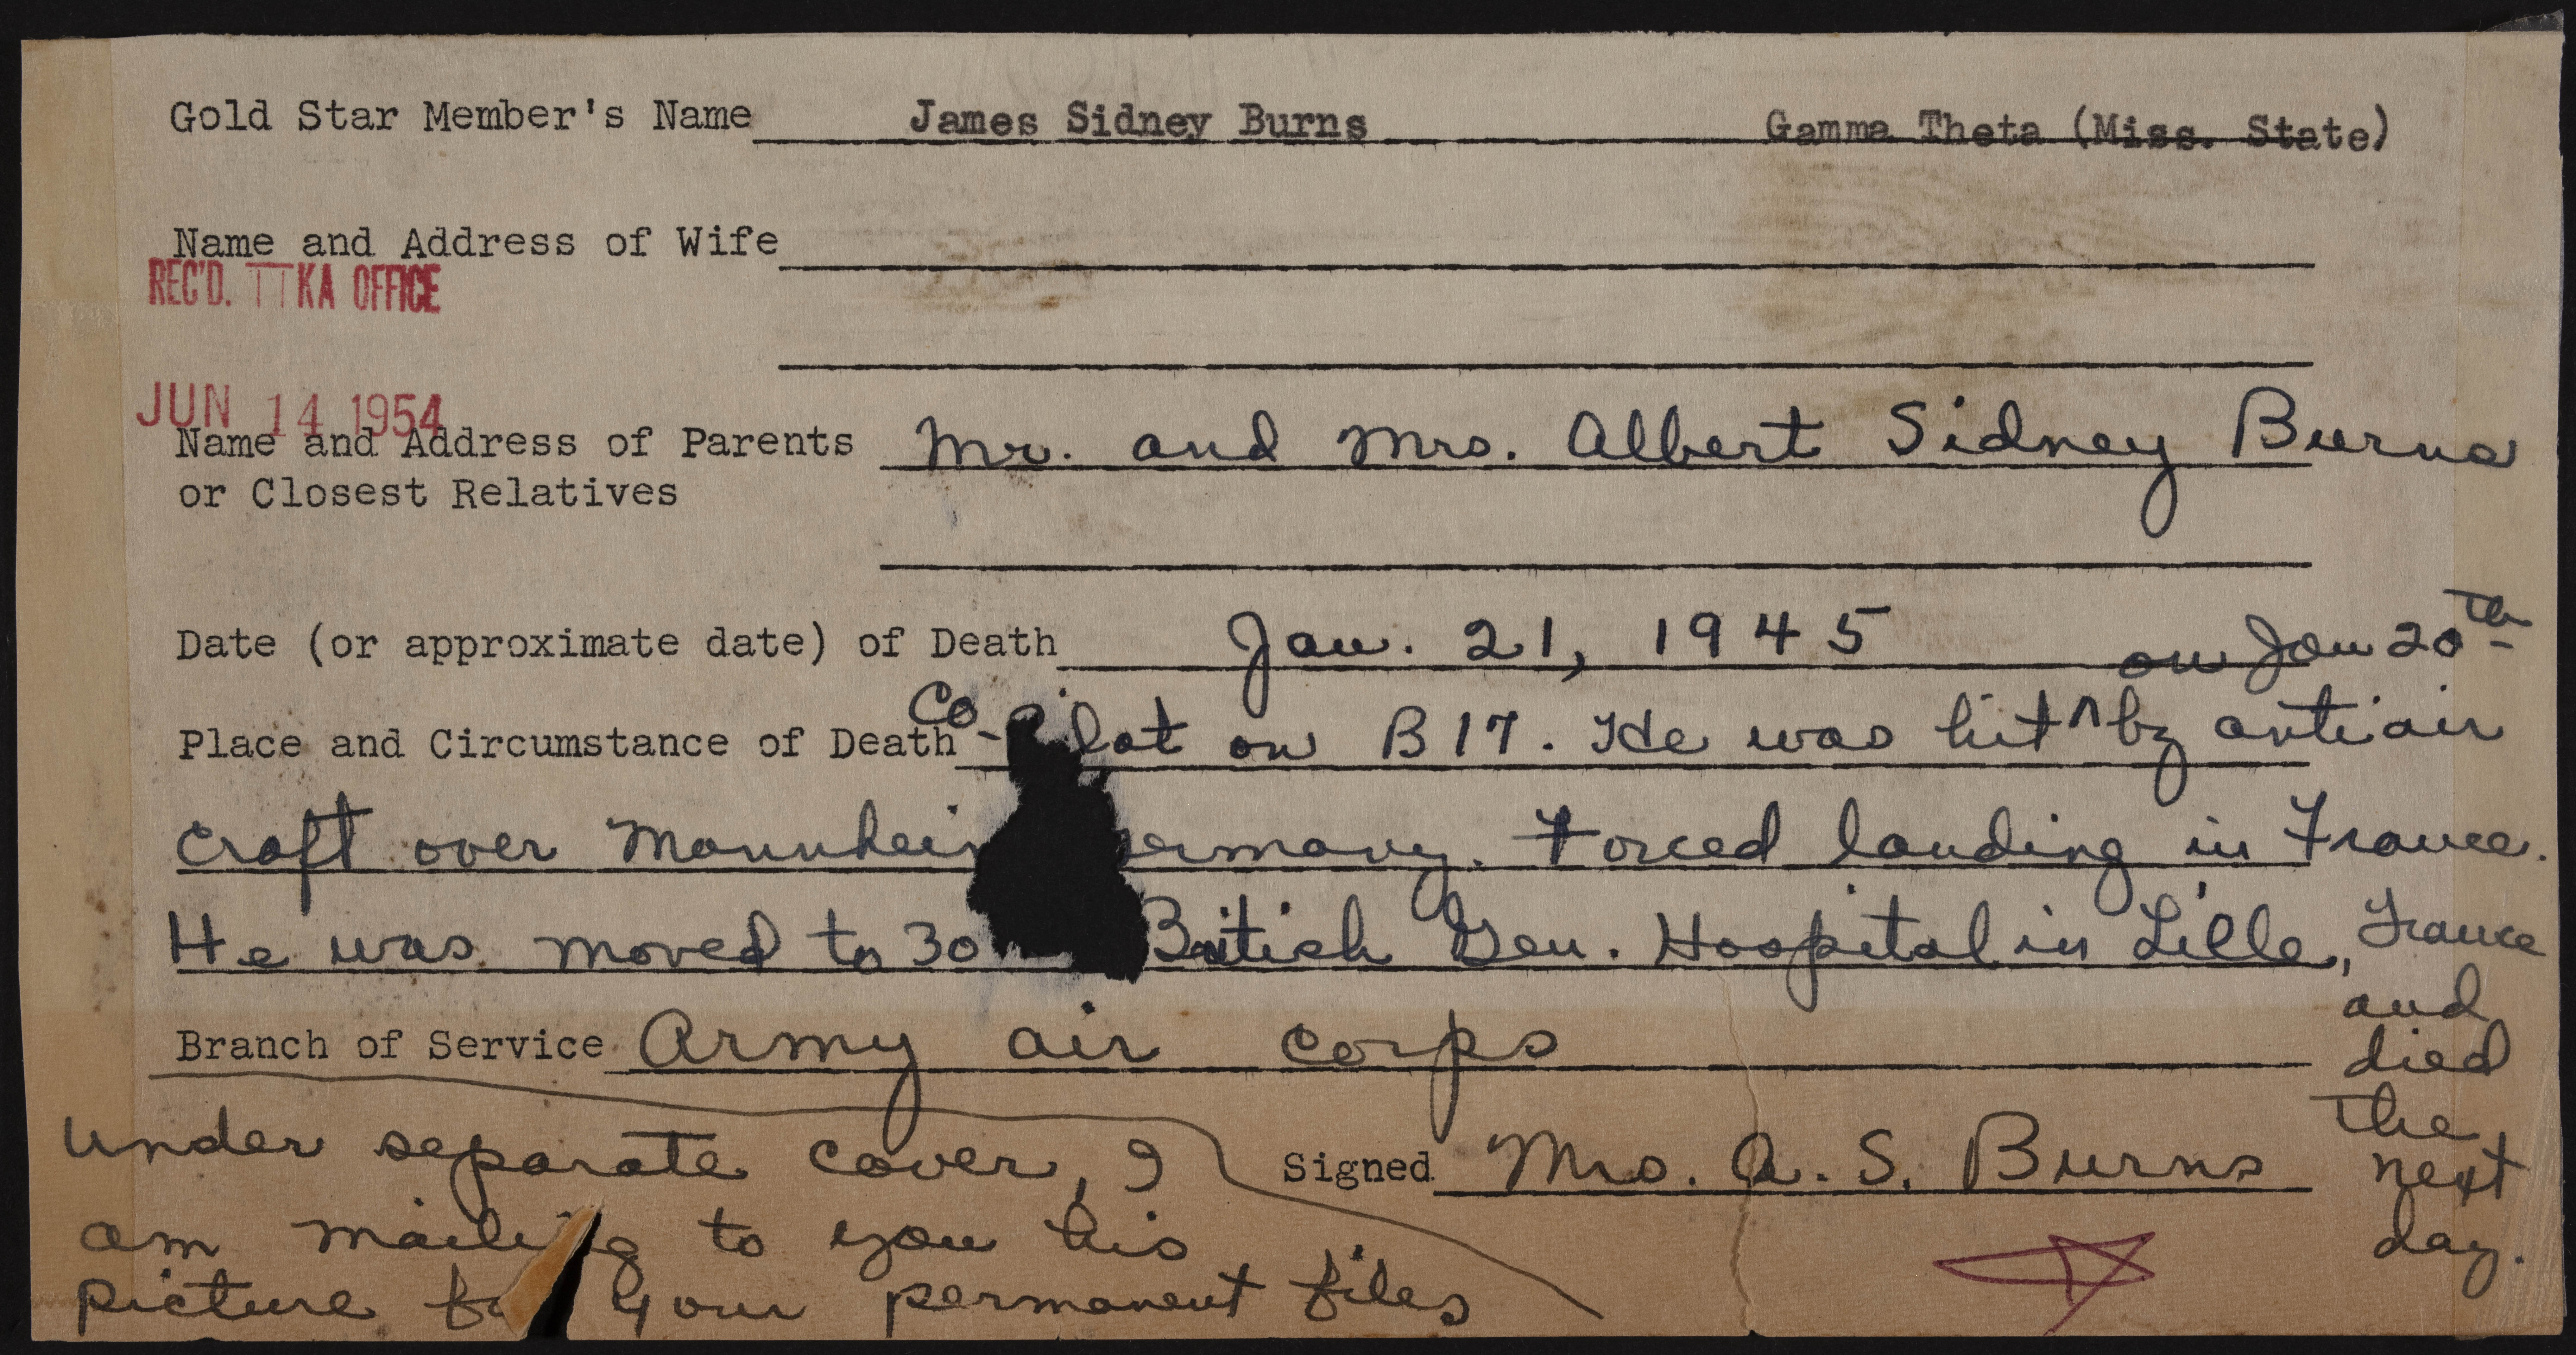 Gold Star Member's Name James Sidney Burns Gamma Theta (Miss. State)
Name and Address of Wife
REC'D. ΠKA OFFICE
JUN 14 1954
Name and Address of Parents Mr. and Mrs. Albert Sidney Burns
or Closest Relatives
Date (or approximate date) of Death Jan. 21, 1945 on Jan 20th
Place and Circumstance of Death Co- lot on B17. He was hit ^ by anti air
craft over Mannheim ermany. Forced landing in France.
He was moved to 30 British Gen. Hospital in Lille, France
and
Branch of Service Army air corps died
the
under separate cover, I Signed Mrs. A. S. Burns next
am mailing to you his day.
picture your permanent files